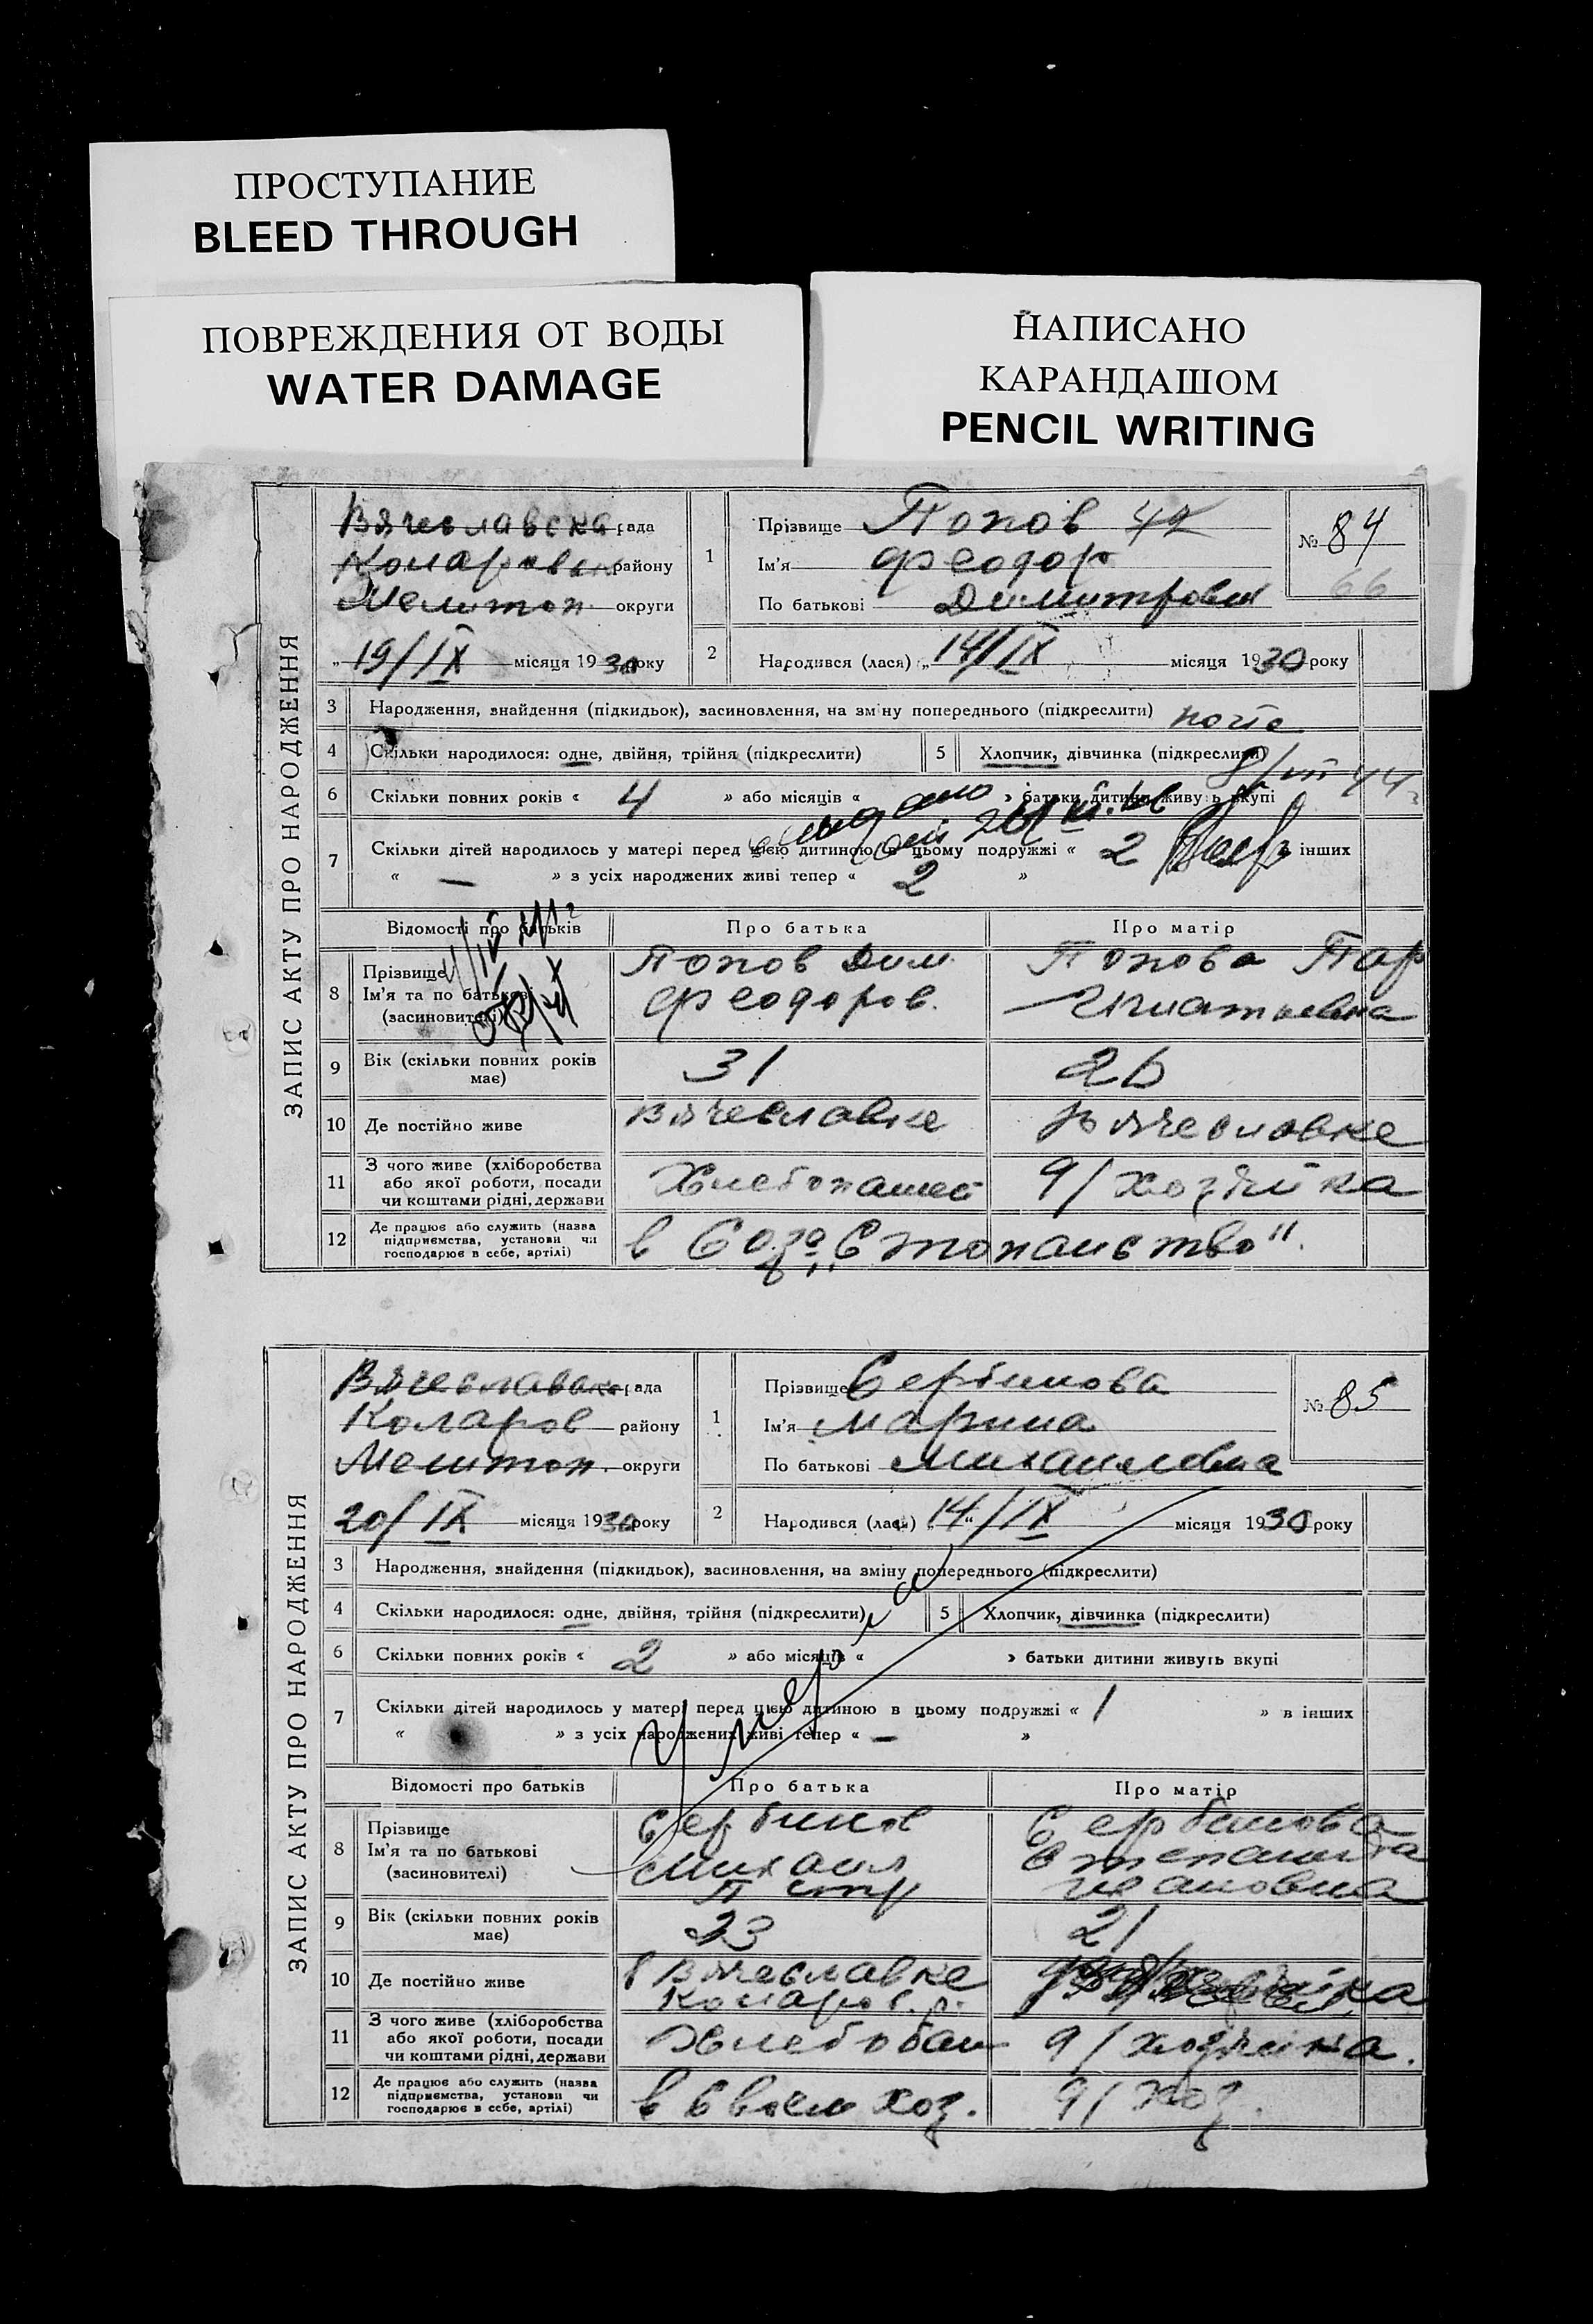 ПРОСТУПАНИЕ
BLEED THROUGH
ПОВРЕЖДЕНИЯ ОТ ВОДЫ
WATER DAMAGE
НАПИСАНО
КАРАНДАШОМ
PENCIL WRITING
ЗАПИС АКТУ ПРО НАРОДЖЕННЯ
Вячеславска рада
района району
Мелитоп. округи
19/IX місяця 1930 року
1 Прізвище Попов 42
Ім'я Феодор
По батькові Димитрович
№ 84
66
2 Народився (лася) „14/IX місяця 1930 року
3 Народження, знайдення (підкидьок), засиновлення, на зміну попереднього (підкреслити)
4 Скільки народилося: одне, двійня, трійня (підкреслити) 5 Хлопчик, дівчинка (підкреслити)
6 Скільки повних років « 4 » або місяців « » батьки дитини живуть вкупі
7 Скільки дітей народилось у матері перед цією дитиною в цьому подружжі « 2 в інших
« — » з усіх народжених живі тепер « 2 »
Відомості про батьків Про батька Про матір
8 Прізвище Попов Дим. Попова Пар
Ім'я та по батькові Феодоров. Игнатьевна
(засиновителі)
9 Вік (скільки повних років має) 31 26
10 Де постійно живе Вячеславке Вячеславке
11 З чого живе (хліборобства
або якої роботи, посади
чи коштами рідні, держави Хлебопашес д/хозяйка
12 Де працює або служить (назва
підприємства, установи чи
господарює в себе, артілі) в Созе „Стопанство".
ЗАПИС АКТУ ПРО НАРОДЖЕННЯ
Вячеславска рада
Коларов району
Мелитоп. округи
20/IX місяця 1930 року
1 Прізвище Сербинова
Ім'я Марина
По батькові Михаиловна
№ 85
2 Народився (лася) „14“/IX місяця 1930 року
3 Народження, знайдення (підкидьок), засиновлення, на зміну попереднього (підкреслити)
4 Скільки народилося: одне, двійня, трійня (підкреслити) 5 Хлопчик, дівчинка (підкреслити)
6 Скільки повних років « 2 » або місяців « » батьки дитини живуть вкупі
7 Скільки дітей народилось у матері перед цією дитиною в цьому подружжі « 1 » в інших
« » з усіх народжених живі тепер « — »
Умерла
Відомості про батьків Про батька Про матір
8 Прізвище Сербинов Сербинова
Ім'я та по батькові Михаил Степанида
(засиновителі) Петр Ивановна
9 Вік (скільки повних років має) 23 21
10 Де постійно живе в Вячеславке
Коларов. р.
11 З чого живе (хліборобства
або якої роботи, посади
чи коштами рідні, держави д/хозяйка.
12 Де працює або служить (назва
підприємства, установи чи
господарює в себе, артілі) в своем хоз. д/хоз.